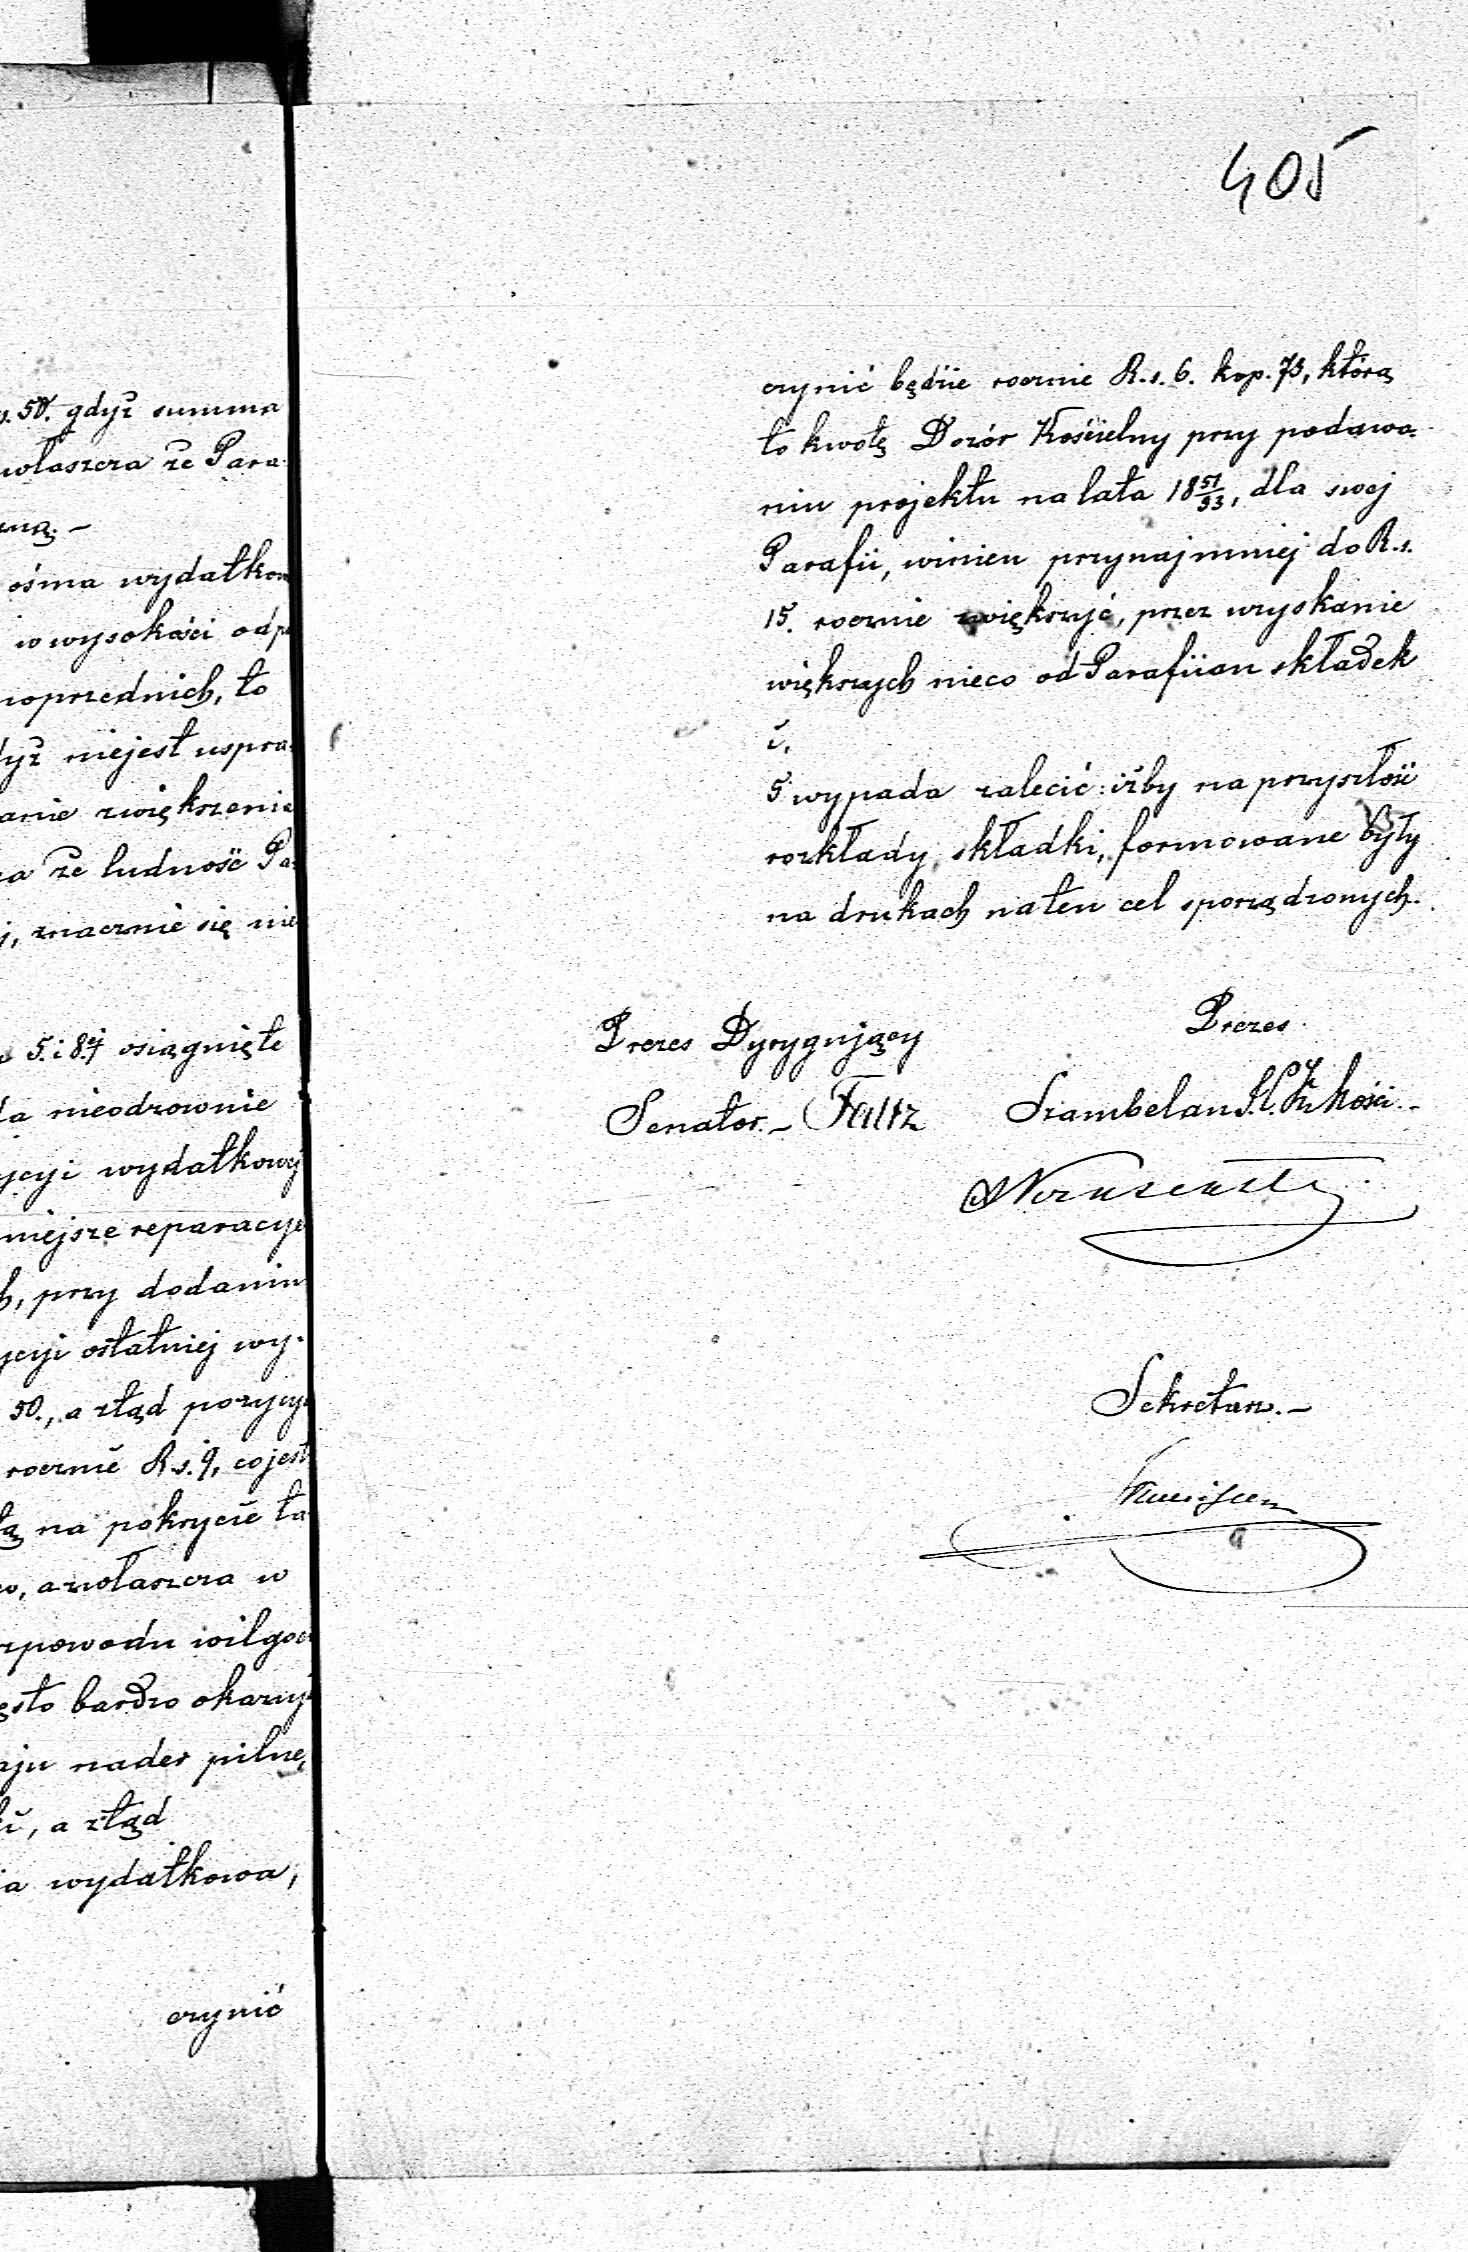 s. 50. gdyż summa
właszcza że Para
ną. –
ośma wydatkow
w wysokości odpo
poprzednich, to
dyż niejest uspra-
anie zwiększenie
a że ludność Pa-
j, znacznie się nie
5. i 8ej osiągnięte
la nieodzownie
ycyi wydatkowej
niejsze reparacye
h, przy dodaniu
ycyi ostatniej wy-
50., a ztąd pozycya
rocznie R.s. 9, co jest
tą na pokrycie ta
w, a zwłaszcza w
zpowodu wilgoci
ęsto bardzo okazuj
aju nader pilne,
ki, a ztąd
ia wydatkowa,
czynić
405
czynić będzie rocznie R.s. 6. kop. 75, którą
to kwotę Dozór Kościelny przy podawa-
niu projektu na lata 18 51/53, dla swej
Parafii, winien przynajmniej do R.s.
15. rocznie zwiększyć, przez uzyskanie
większych nieco od Parafiian składek
i.
5 wypada zalecić: iżby na przyszłość
rozkłady, składki, formowane były
na drukach na ten cel sporządzonych.
Prezes Dyrygujący
Senator. – Faltz
Prezes
Szambelan J. C. K. Mości. –
Sekretarz. –